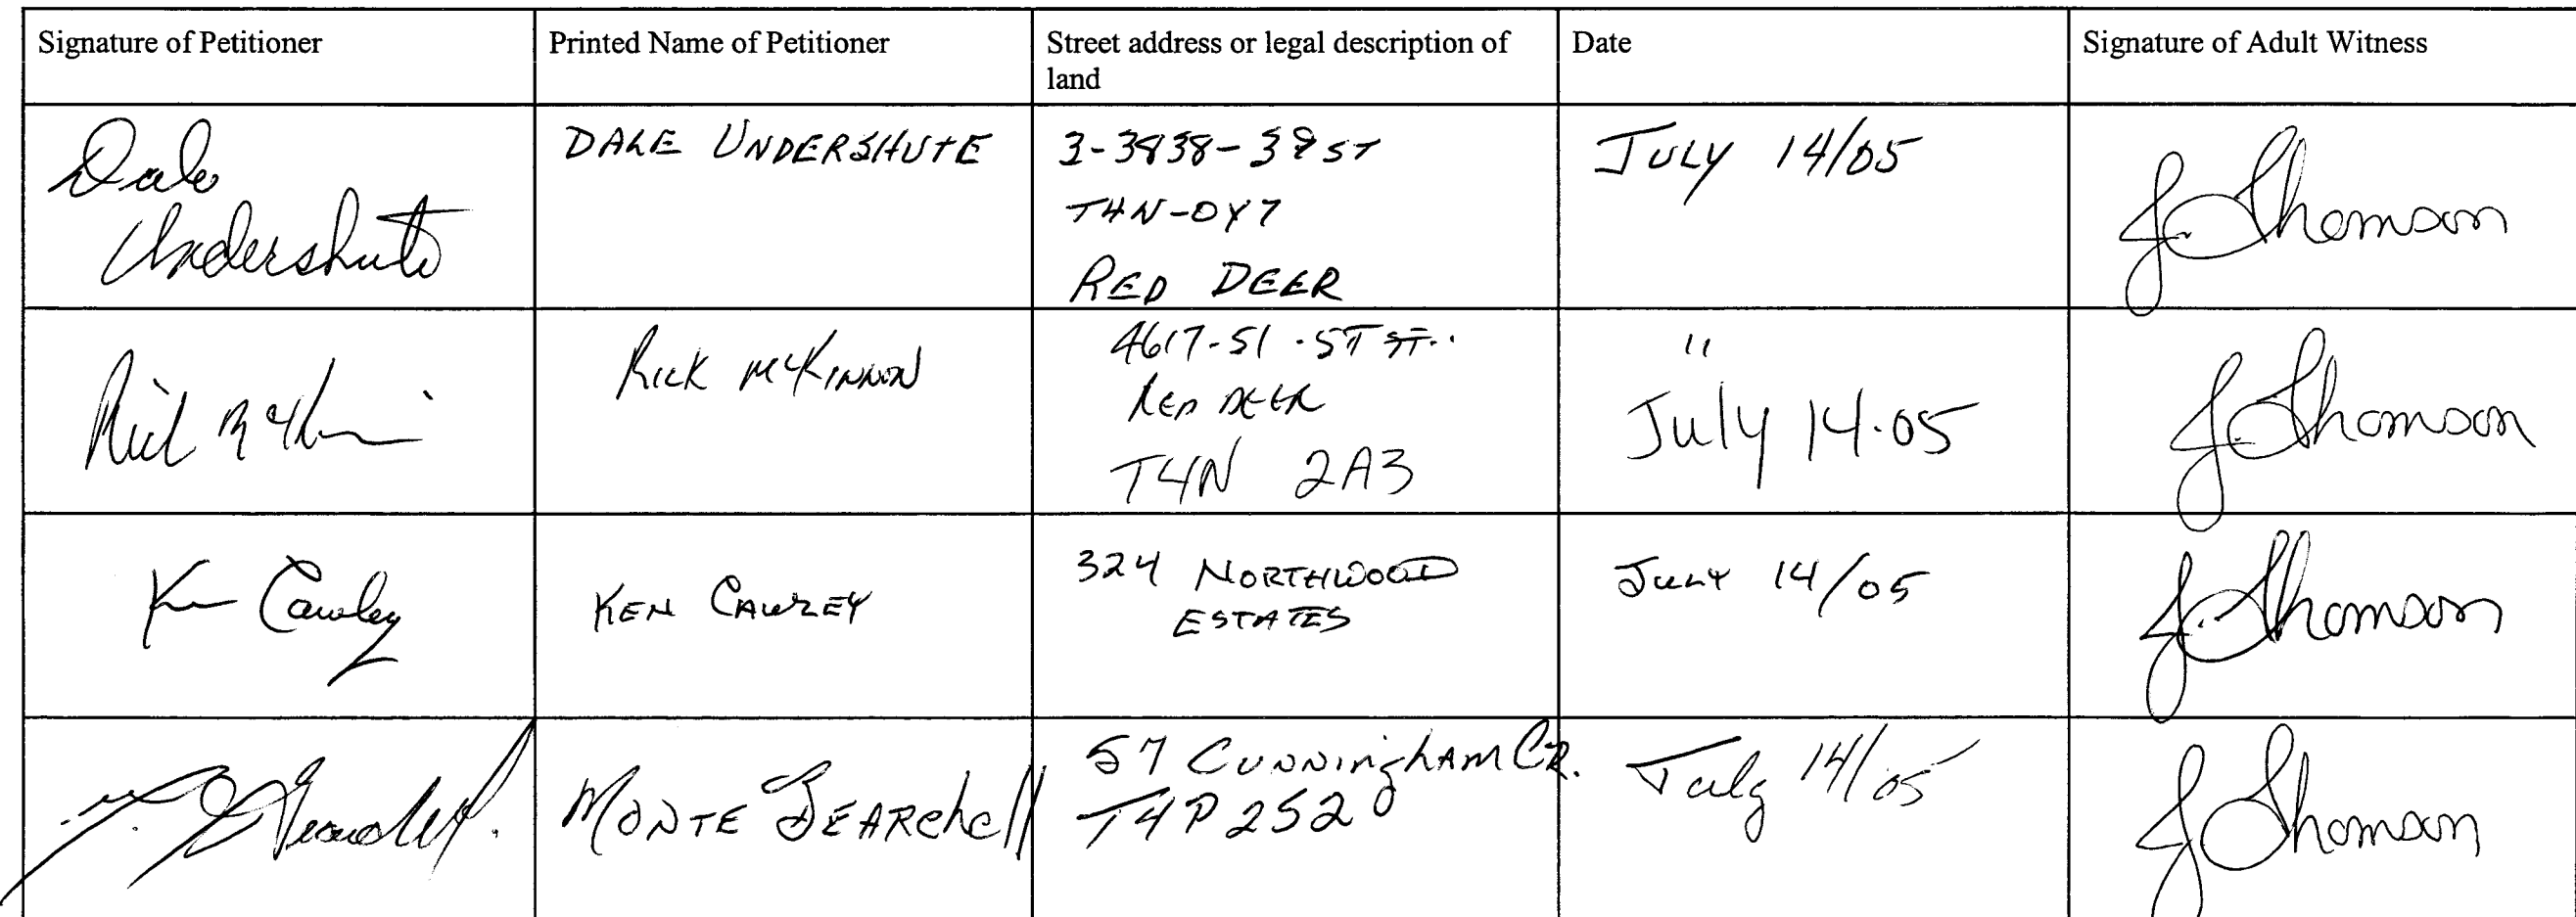 Signature of Petitioner
Printed Name of Petitioner
Street address or legal description of
land
Date
Signature of Adult Witness
Dale
Undershute
DALE UNDERSHUTE
3-3838-39 ST
T4N-0Y7
RED DEER
JULY 14/05
J. Thomson
Rick McKinnon
4617-51-ST ST..
RED DEER
T4N 2A3
"
July 14.05
J. Thomson
Ken Cawley
KEN CAWLEY
324 NORTHWOOD
ESTATES
JULY 14/05
J. Thomson
MONTE GEARchell
57 CUNNINghAM CR.
T4P 2S2
July 14/05
J Thomson